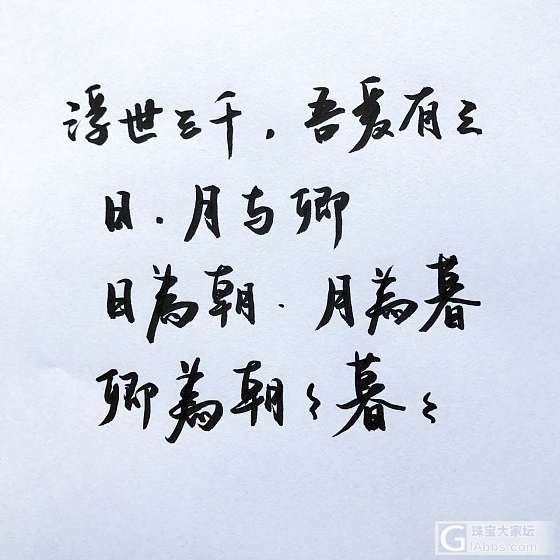 浮世三千，吾爱有三
日．月与卿
日為朝．月為暮
卿為朝〻暮〻
珠宝大家坛
GIAbbs.com